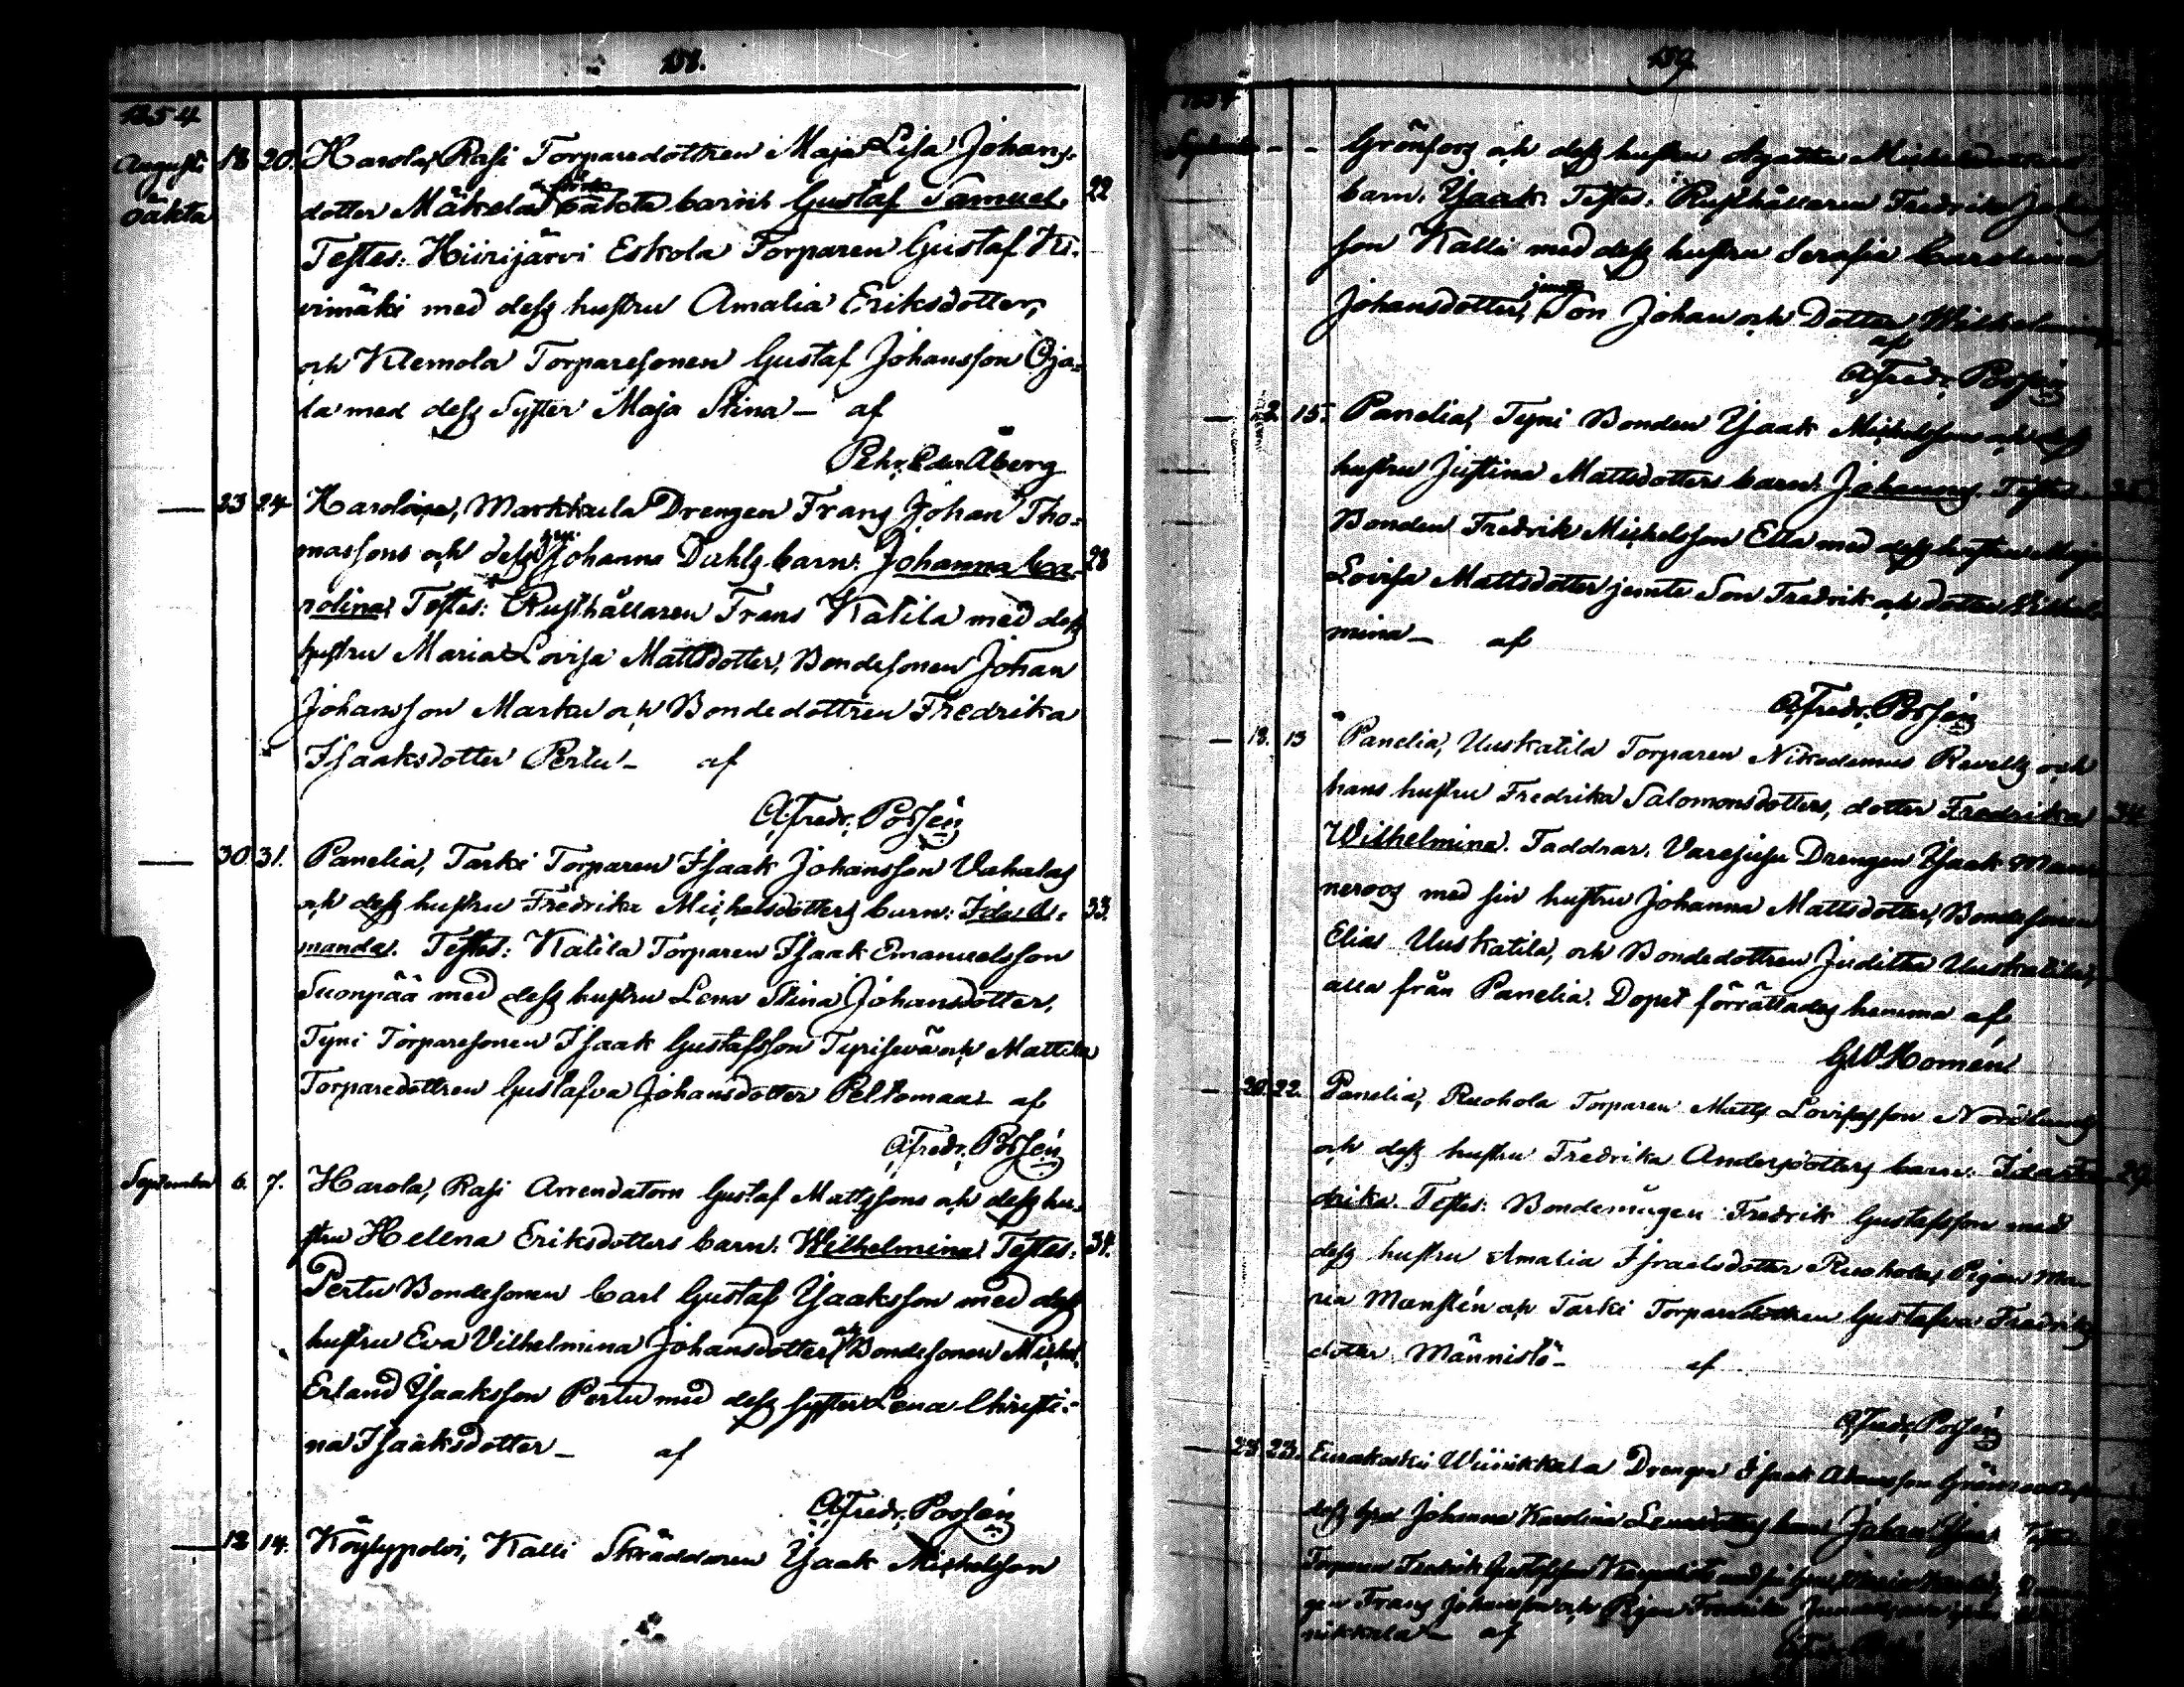 158.
1854
Augusti 18 20. Harola, Rasi Torparedottren Maja Lisa Johans-
oäkta dotter Mäkelas oäkta barn: Gustaf Samuel. 22
Testes: Hiirijärvi Eskola Torparen Gustaf Ki-
vimäki med dess hustru Amalia Eriksdotter,
och Klemola Torparesonen Gustaf Johansson Oja-
la med dess Syster Maja Stina — af
Åberg
— 23 24 Harola, Markkula Drengen Frans Johan Tho-
massons och dess Johanna Dahls barn: Johanna Ca- 28
rolina. Testes: Rusthållaren Frans Katila med dess
hustru Maria Lovisa Mattsdotter, Bondesonen Johan
Johansson Marku och Bondedottren Fredrika
Isaaksdotter Pertu — af
Alfredr. Possén
— 30 31. Panelia, Tarki Torparen Isaak Johansson Vahalas
och dess hustru Fredrika Michelsdotters barn: Ida A- 33.
manda. Testes: Katila Torparen Isaak Emanuelsson
Suonpää med dess hustru Lena Stina Johansdotter,
Tyni Torparesonen Isaak Gustafsson Tyrisevä och Mattila
Torparedottren Gustafva Johansdotter Peltomaa — af
Alfredr. Possén
September 6. 7. Harola, Rasi Arrendatorn Gustaf Mattssons och dess hu-
stru Helena Eriksdotters barn: Wilhelmina. Testes: 34.
Pertu Bondesonen Carl Gustaf Isaaksson med dess
hustru Eva Vilhelmina Johansdotter och Bondesonen Michel
Erland Isaaksson Pertu med dess syster Lena Christi-
na Isaaksdotter — af
Alfredr. Possén
— 12 14. Köylypolvi, Kalli Skräddaren Isaak Michelsson
159.
1854
September - - Grönfors och dess hustru Agatha
barn: Isaak. Testes: Rusthållaren Fredrik Johans-
son Kalli med dess hustru Serafia Carolina
Johansdotter, jemte Son Johan och Dotter Wilhelmina
af
Alfredr. Possén
— 15. Panelia, Tyni Bonden Isaak Michelssons och dess
hustru Justina Mattsdotters barn: Johannes. Testes:
Bonden Fredrik Michelsson Eila med dess hustru Maja
Lovisa Mattsdotter jemte Son Fredrik och dotter Vilhel-
mina — af
Alfredr. Possén
— 13. 13 Panelia, Uuskatila Torparen Nikodemus Revells och
hans hustru Fredrika Salomonsdotters, dotter Fredrika 34
Wilhelmina. Faddrar: Varesjusu Drengen Isaak Man-
neroos med sin hustru Johanna Mattsdotter, Bondesonen
Elias Uuskatila, och Bondedottren Juditha Uuskatila,
alla från Panelia. Dopet förrättades hemma af
GW Homén
— 20. 22. Panelia, Ruohola Torparen Matts Lovisasson Nordlunds
och dess hustru Fredrika Andersdotters barn: Ida Fre- 29
drika. Testes: Bondemågen Fredrik Gustafsson med
dess hustru Amalia Israelsdotter Ruohola, Pigan Ma-
ria Monstén och Tarki Torparedottren Gustafva Fredriks
dotter Männistö — af
Alfredr. Possén
— 23. 23. Eurakoski Wiinikkala Drengen Isaak Adamsson
dess Johanna Karolina barn: Johan Isaak. Testes:
Torparen Fredrik Gustafsson med
gen Frans Johansson och Pigan Fredrika
nikkala — af